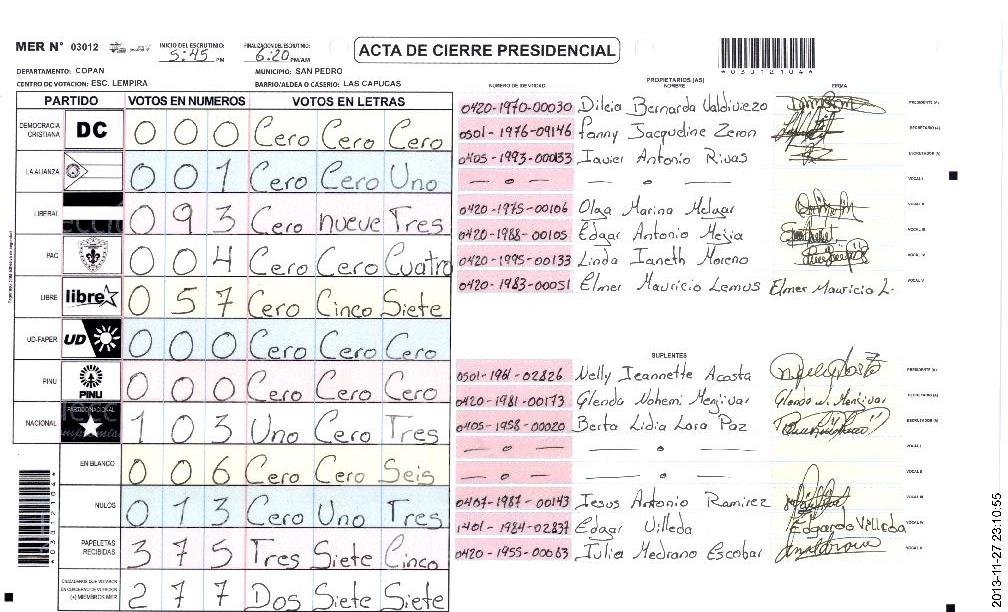 MER N° 03012 INICIO DEL ESCRUTINIO: 5:45 PM FINALIZACION DEL ESCRUTINIO: 6:20 PM/AM
ACTA DE CIERRE PRESIDENCIAL
*03012104*
DEPARTAMENTO: COPAN MUNICIPIO: SAN PEDRO
CENTRO DE VOTACION: ESC. LEMPIRA BARRIO/ALDEA O CASERIO: LAS CAPUCAS
PARTIDO VOTOS EN NUMEROS VOTOS EN LETRAS
DEMOCRACIA CRISTIANA DC 0 0 0 Cero Cero Cero
LA ALIANZA 0 0 1 Cero Cero Uno
LIBERAL 0 9 3 Cero nueve Tres
PAC 0 0 4 Cero Cero Cuatro
LIBRE libre 0 5 7 Cero Cinco Siete
UD-FAPER UD 0 0 0 Cero Cero Cero
PINU PINU 0 0 0 Cero Cero Cero
NACIONAL PARTIDO NACIONAL 1 0 3 Uno Cero Tres
EN BLANCO 0 0 6 Cero Cero Seis
NULOS 0 1 3 Cero Uno Tres
PAPELETAS RECIBIDAS 3 7 5 Tres Siete Cinco
CIUDADANOS QUE VOTARON EN CUADERNO DE VOTACION (+) MIEMBROS MER 2 7 7 Dos Siete Siete
PROPIETARIOS (AS)
NUMERO DE IDENTIDAD NOMBRE FIRMA
0420-1970-00030 Dilcia Bernarda Valdiviezo PRESIDENTE (A)
0501-1976-09146 Fanny Jacqueline Zeron SECRETARIO (A)
0405-1993-00033 Javier Antonio Rivas ESCRUTADOR (A)
— o — — o — VOCAL I
0420-1975-00106 Olga Marina Melgar VOCAL II
0420-1988-00105 Edgar Antonio Mejia VOCAL III
0420-1995-00133 Linda Janeth Moreno VOCAL IV
0420-1983-00051 Elmer Mauricio Lemus Elmer Mauricio L. VOCAL V
SUPLENTES
0501-1961-02826 Nelly Jeannette Acosta PRESIDENTE (A)
0420-1981-00173 Glenda Nohemi Menjivar Glenda N. Menjivar SECRETARIO (A)
0405-1958-00020 Berta Lidia Lara Paz ESCRUTADOR (A)
— o — — o — VOCAL I
— o — — o — VOCAL II
0407-1987-00143 Jesus Antonio Ramirez VOCAL III
1401-1984-02837 Edgar Villeda Edgardo Villeda VOCAL IV
0420-1955-00063 Julia Medrano Escobar VOCAL V
*03012104*
2013-11-27 23:10:55